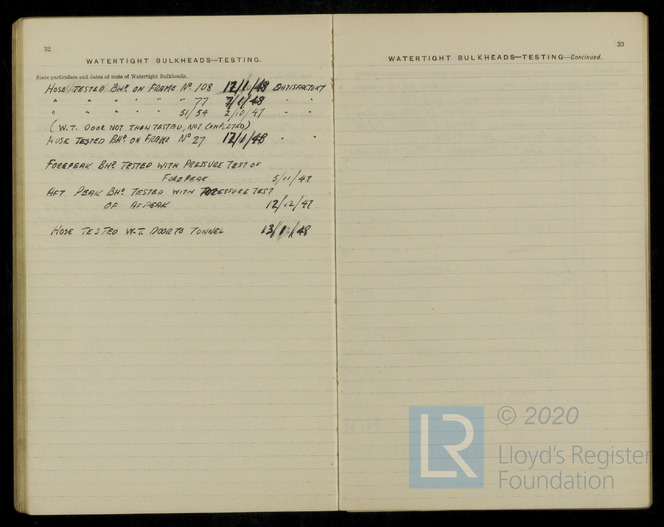 32
WATERTIGHT BULKHEADS—TESTING.
State particulars and dates of tests of Watertight Bulkheads.
HOSE TESTED BHD ON FRAME No 108 12/1/48 SATISFACTORY
" " " " " " 77 7/1/48 " "
" " " " " 51/54 2/10/47 " "
(W.T. DOOR NOT THEN TESTED, NOT COMPLETED)
HOSE TESTED BHD ON FRAME No 27 12/1/48 " "
FOREPEAK BHD TESTED WITH PRESSURE TEST OF
FOREPEAK 5/11/47
AFT PEAK BHD TESTED WITH PRESSURE TEST
OF AFPEAK 12/12/47
HOSE TESTED W.T. DOOR TO TUNNEL 13/1/48
33
WATERTIGHT BULKHEADS—TESTING—Continued.
LR
© 2020
Lloyd's Register
Foundation